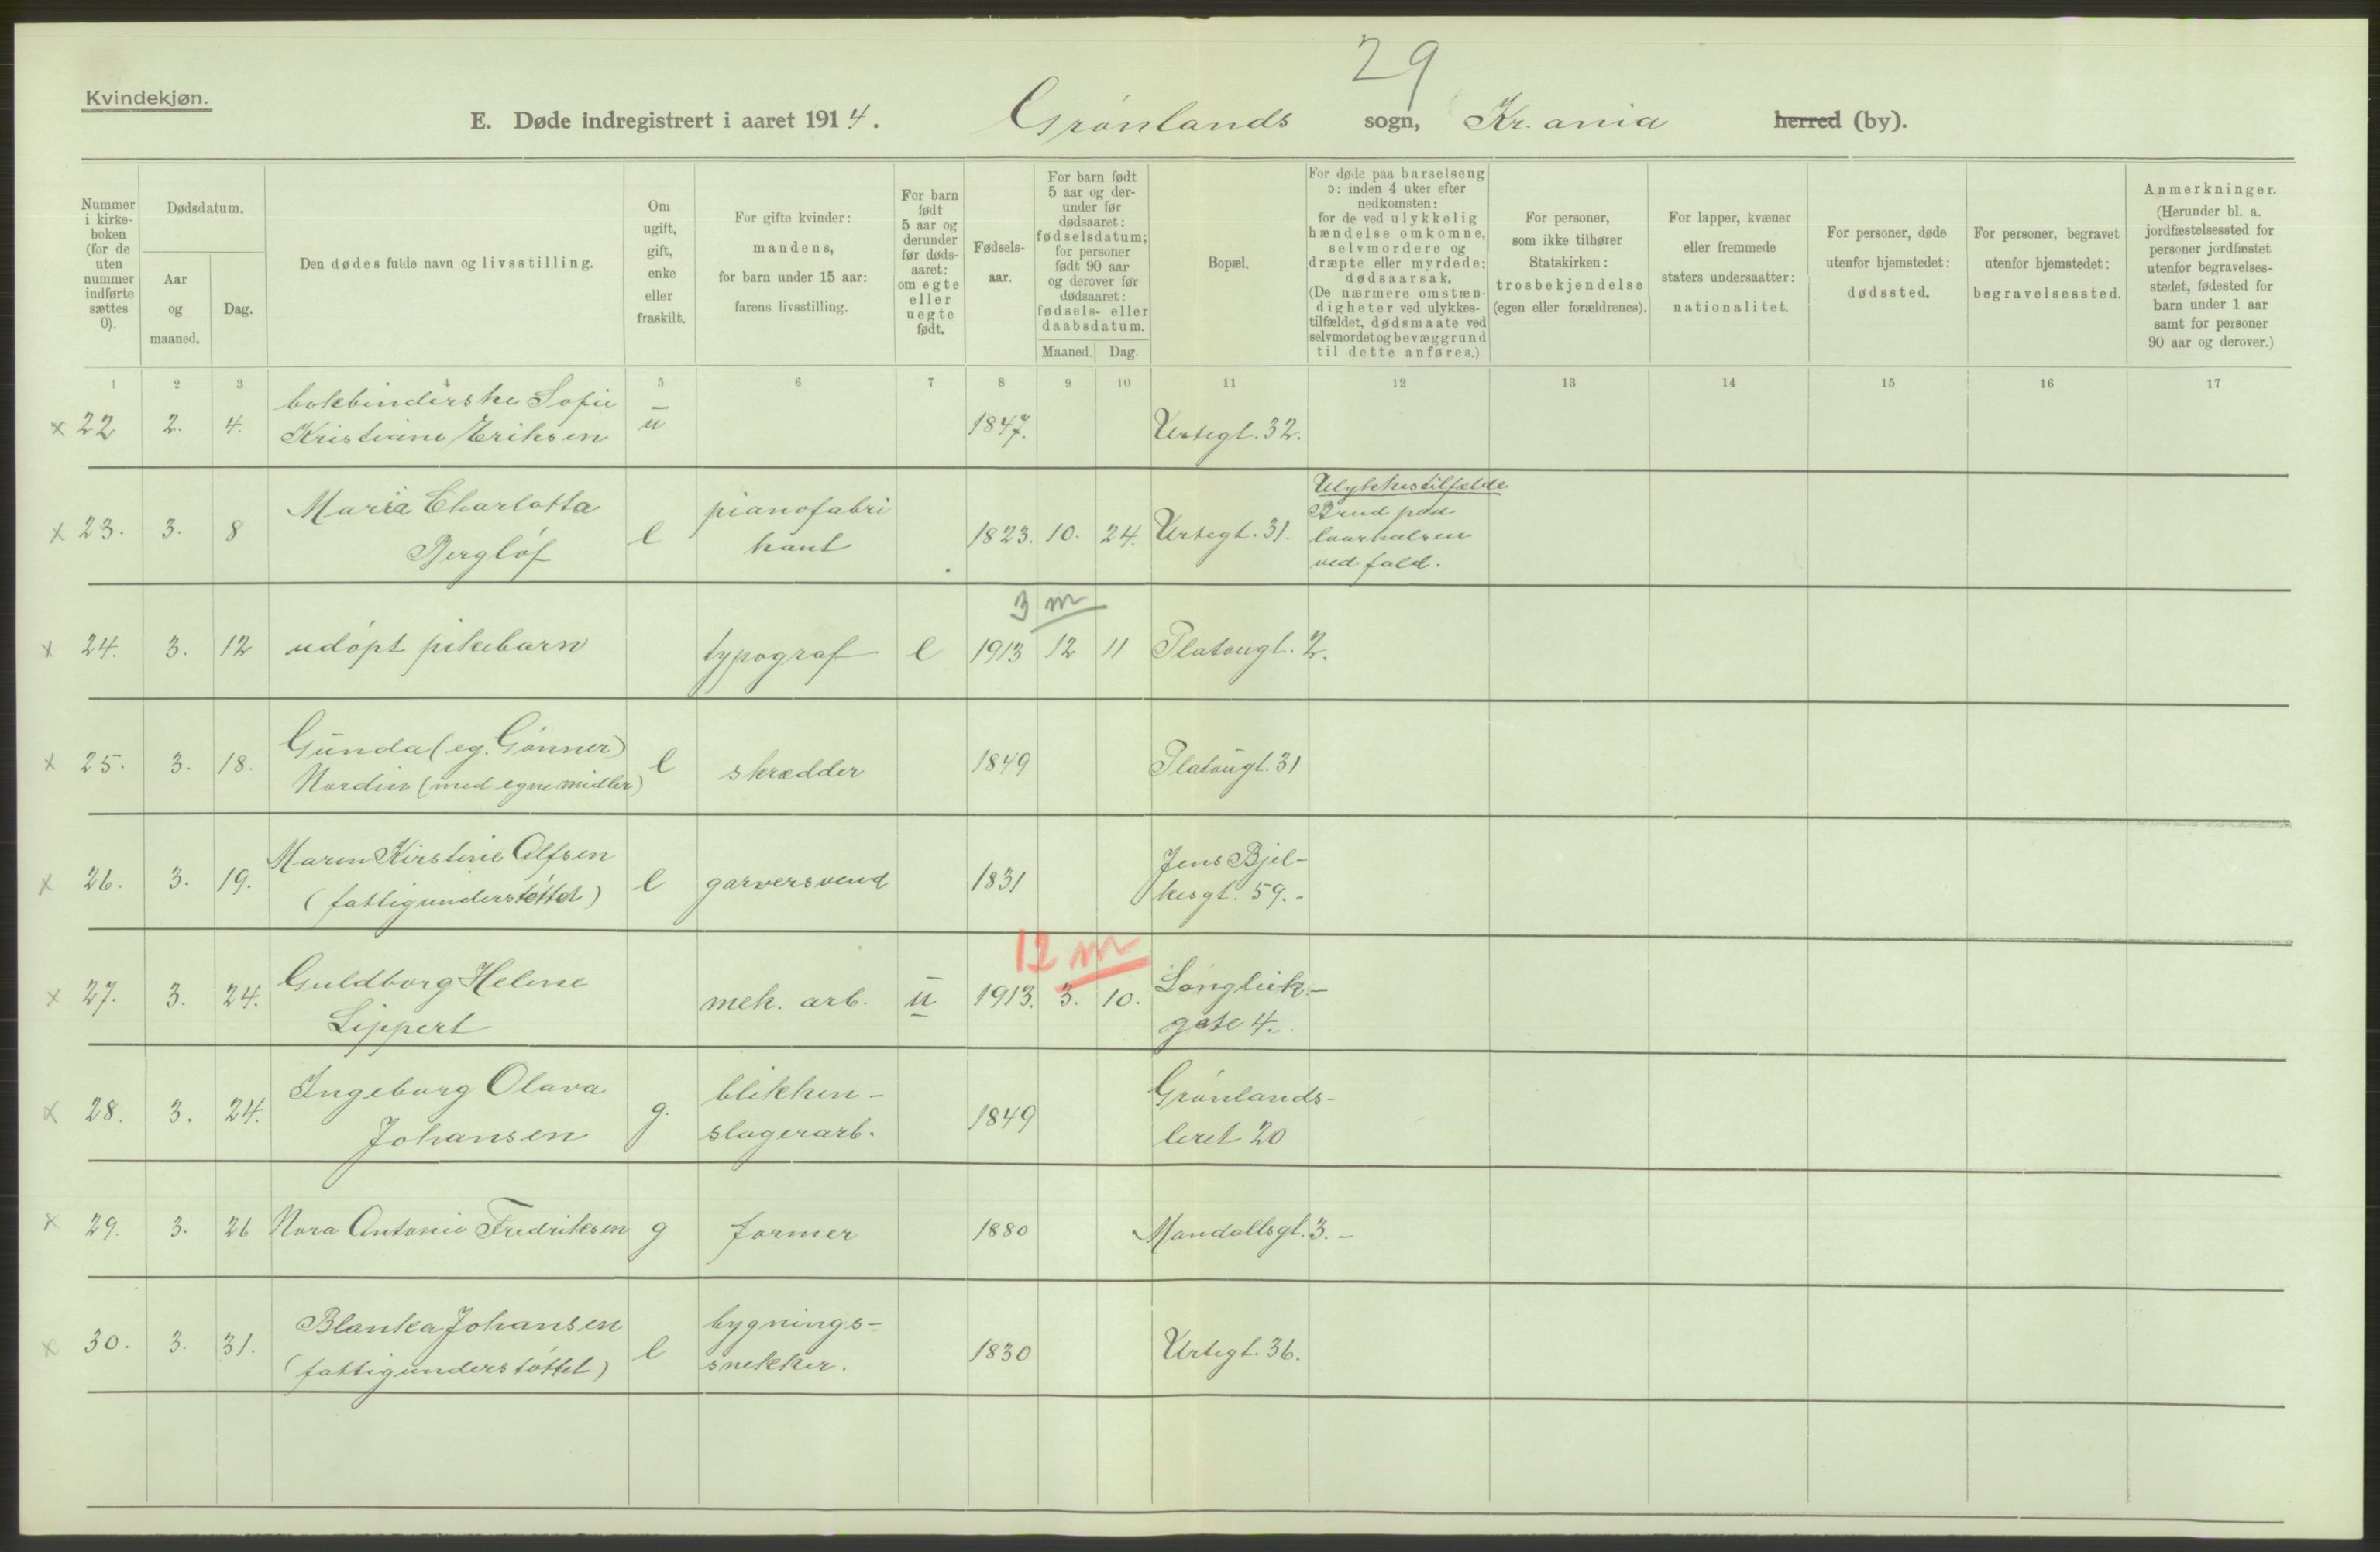 29
Kvindekjøn.
E. Døde indregistrert i aaret 1914. Grønlands sogn, Kr.ania herred (by).
Nummer i kirke- boken (for de uten nummer indførte sættes 0).
Dødsdatum.
Aar og maaned.
Dag.
Den dødes fulde navn og livsstilling.
Om ugift, gift, enke eller fraskilt.
For gifte kvinder: mandens, for barn under 15 aar: farens livsstilling.
For barn født 5 aar og derunder før døds- aaret: om egte eller uegte født.
Fødsels- aar.
For barn født 5 aar og der- under før dødsaaret: fødselsdatum; for personer født 90 aar og derover før dødsaaret: fødsels- eller daabsdatum.
Maaned. Dag.
Bopæl.
For døde paa barselseng ɔ: inden 4 uker efter nedkomsten: for de ved ulykkelig hændelse omkomne, selvmordere og dræpte eller myrdede: dødsaarsak. (De nærmere omstæn- digheter ved ulykkes- tilfældet, dødsmaate ved selvmordet og bevæggrund til dette anføres.)
For personer, som ikke tilhører Statskirken: trosbekjendelse (egen eller forældrenes).
For lapper, kvæner eller fremmede staters undersaatter: nationalitet.
For personer, døde utenfor hjemstedet: dødssted.
For personer, begravet utenfor hjemstedet: begravelsessted.
Anmerkninger. (Herunder bl. a. jordfæstelsessted for personer jordfæstet utenfor begravelses- stedet, fødested for barn under 1 aar samt for personer 90 aar og derover.)
1 2 3 4 5 6 7 8 9 10 11 12 13 14 15 16 17
x 22 2. 4. bokbinderske Sofie u 1847. Urtegt. 32.
Kristiane Eriksen
x 23. 3. 8 Maria Charlotta Berglöf e pianofabri kant 1823. 10. 24. Urtegt. 31. Ulykkestilfælde
Brud paa
laarhalsen
ved fald.
3 m
x 24. 3. 12 udøpt pikebarn typograf e 1913 12 11 Platougt. 2.
x 25. 3. 18. Gunda (eg. Gönner) e skrædder 1849 Platougt. 31
Nordin (med egne midler)
x 26. 3. 19. Maren Kirstine Alfsen e garversvend 1831 Jens Bjel-
(fattigunderstøttet) kesgt. 59.-
12 m
x 27. 3. 24. Guldborg Helene mek. arb. u 1913. 3. 10. Langleik-
Lippert gate 4.
x 28. 3. 24. Ingeborg Olava g. blikken- 1849 Grønlands-
Johansen slagerarb. leret 20
x 29. 3. 26 Nora Antonie Fredriksen g former 1880 Mandallsgt. 3.-
x 30. 3. 31. Blanka Johansen e bygnings- 1830 Urtegt. 36.
(fattigunderstøttet) snekker.